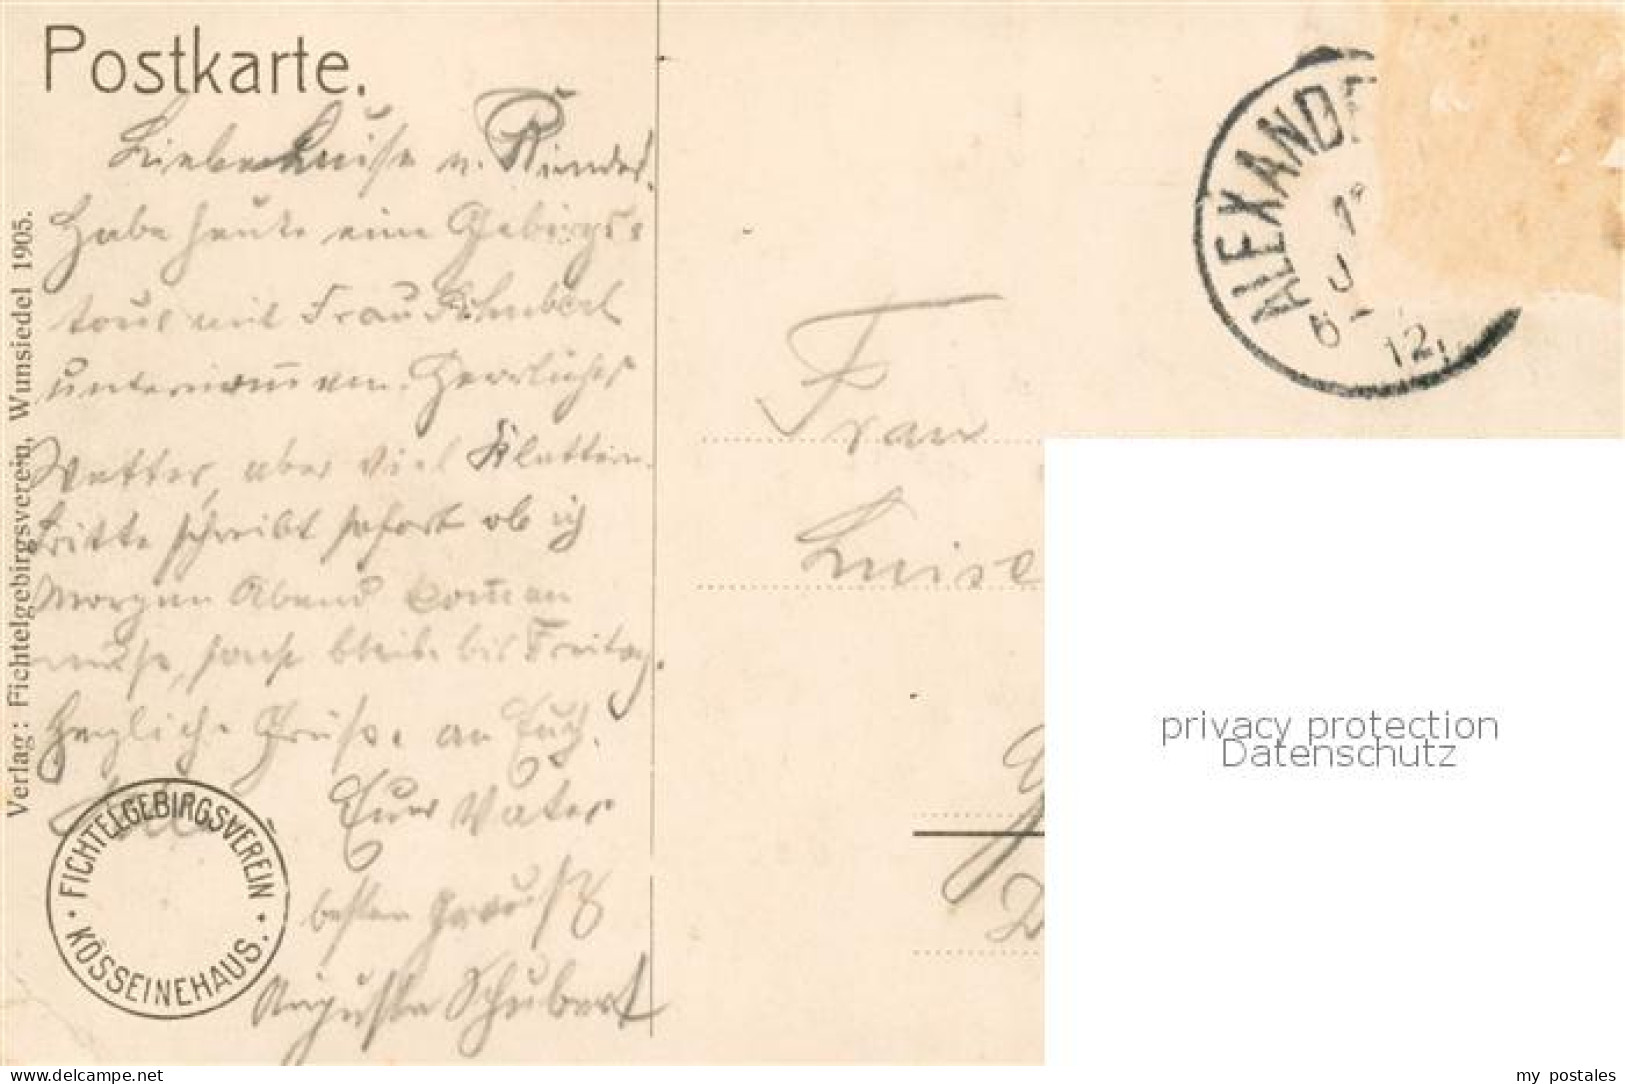 Postkarte.
Liebe Luise u. Kinder.
Habe heute eine Gebirgs-
tour mit Frau Schubert
unternom̄en. Herrliches
Wetter, aber viel
tritte schreibt sofort ob ich
Morgen Abend kom̄en
muß, sonst bleibe bis Freitag.
Herzliche Grüße an Euch.
Euer Vater
besten Gruß
Auguste Schubert
Verlag: Fichtelgebirgsverein, Wunsiedel 1905.
FICHTELGEBIRGSVEREIN
KÖSSEINEHAUS.
ALEXAND
12
Frau
Luise
privacy protection
Datenschutz
www.delcampe.net
my_postales